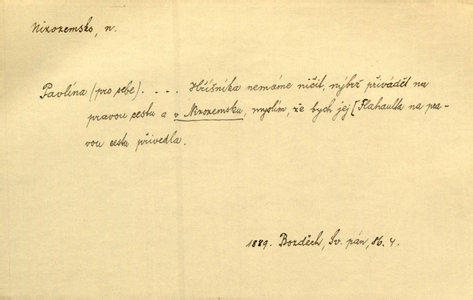 Nizozemsko, n.
Pavlína (pro sebe). . . . Hříšníka nemáme ničit, nýbrž přivádět na
pravou cestu a v Nizozemsku, myslím, že bych jej [Flahaulta na pra-
vou cestu přivedla.
1889. Bozděch, Sv. pán, 86. 4.